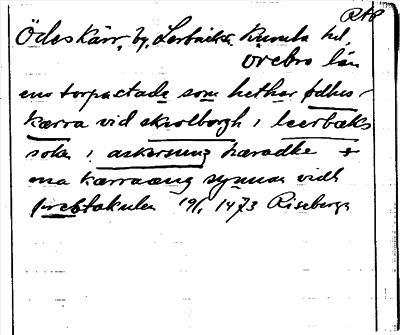 RAP
Ödeskärr, by, Lerbäcks, Kumla hd,
Örebro län
ena torpastade som hethar ødhus-
kærra vid skolborgh i leerbæks
sokn i askersung hæradhe &
ena kærraæng synnan vidh
19/1 1473 Riseberga